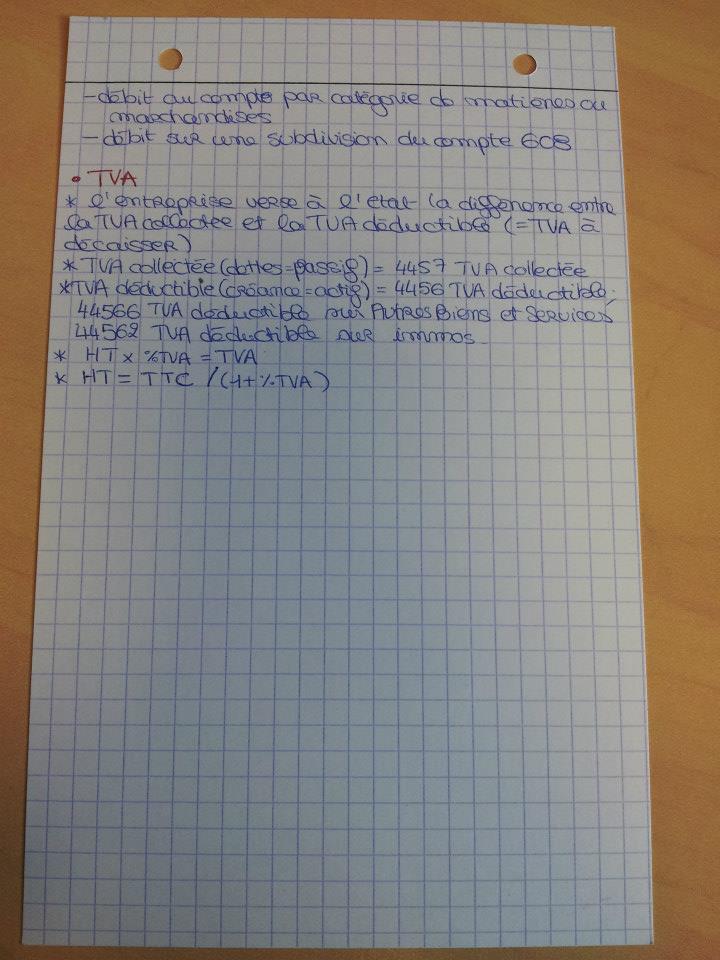 - débit au compte par catégorie de matières ou
marchandises
- débit sur une subdivision du compte 608
• TVA
* l'entreprise verse à l'état la différence entre
la TVA collectée et la TVA déductible (= TVA à
décaisser)
* TVA collectée (dettes = passif) = 4457 TVA collectée
* TVA déductible (créance = actif) = 4456 TVA déductible.
44566 TVA déductible sur Autres Biens et Services
44562 TVA déductible sur immos.
* HT x %TVA = TVA
* HT = TTC / (1+%TVA)